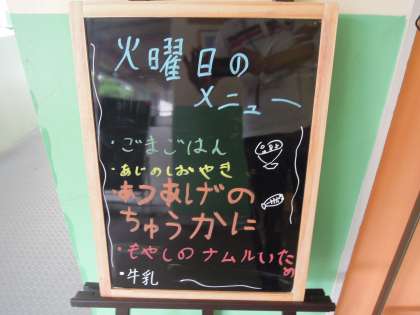 火曜日の
メニュー
・ごまごはん
・あじのしおやき
・あつあげの
ちゅうかに
・もやしのナムルいため
・牛乳